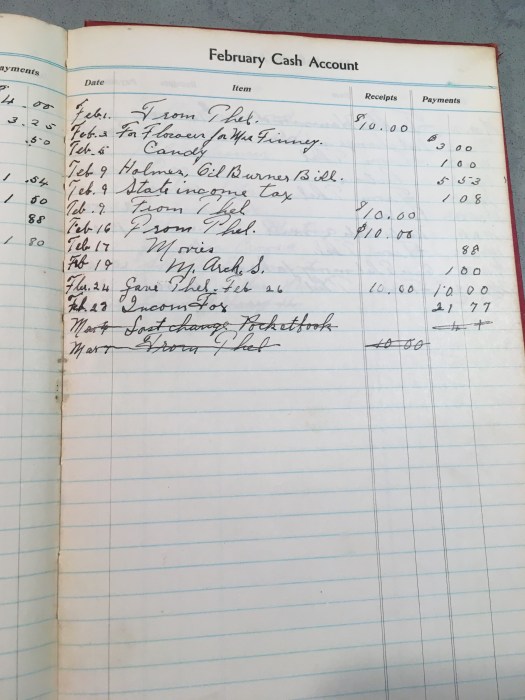 ayments
4.00
3.25
.50
1 .54
1 50
88
1 80
February Cash Account
Date Item Receipts Payments
Feb. 1. From Thel. $10.00
Feb. 3 For Flower for Mrs Finney. 3 00
Feb. 5 Candy 1 00
Feb. 9 Holmes, Oil Burner Bill. 5 53
Feb. 9 State income tax 1 08
Feb. 9. From Thel $10.00
Feb 16 From Thel. $10.00
Feb 17 Movies 88
Feb 19 M. Arch. S. 1 00
Feb. 24 Gave Thel. Feb 26 10.00 10 00
Feb 28 Incom Tax 21 77
Mar Lost change Pocketbook
Mar From Thel 10 00